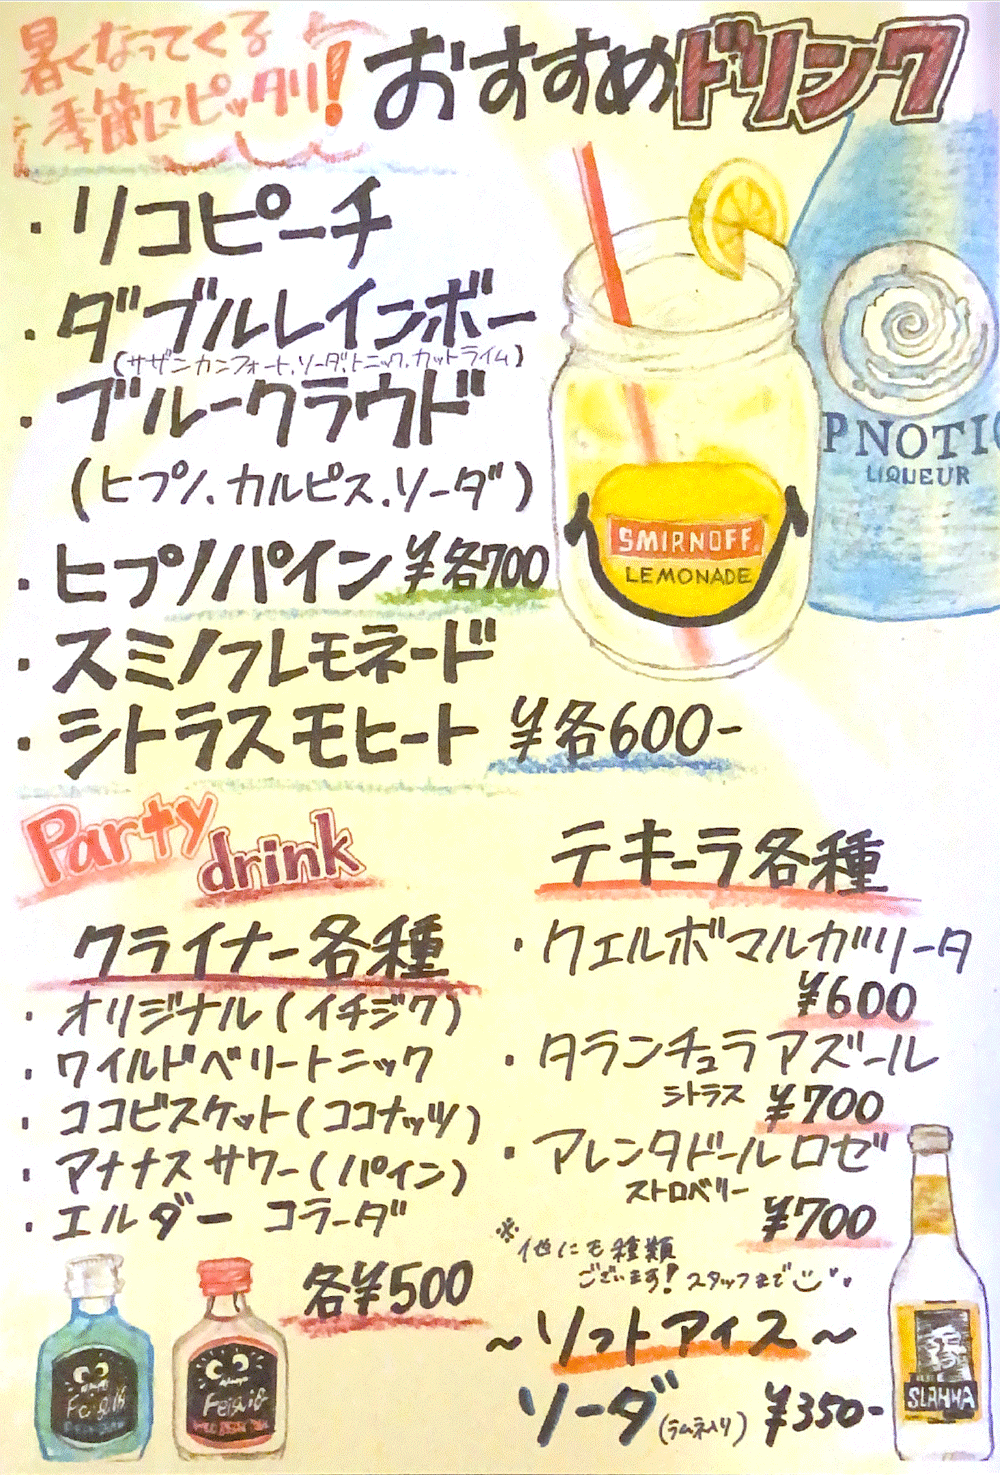 暑くなってくる
季節にピッタリ!
おすすめドリンク
・リコピーチ
・ダブルレインボー
(サザンカンフォート、ソーダ、トニック、カットライム)
・ブルークラウド
(ヒプノ、カルピス、ソーダ)
・ヒプノパイン ¥各700
・スミノフレモネード
・シトラスモヒート ¥各600-
PNOTIQ
LIQUEUR
SMIRNOFF.
LEMONADE
Party
drink
クライナー各種
・オリジナル(イチジク)
・ワイルドベリートニック
・ココビスケット(ココナッツ)
・アナナスサワー(パイン)
・エルダー コラーダ
各¥500
Feigli
Feiglig
テキーラ各種
・クェルボマルガリータ
¥600
・タランチュラアズール
シトラス ¥700
・アレンタドールロゼ
ストロベリー
¥700
※他にも種類
ございます!スタッフまで
~ソフトアイス~
ソーダ(ラムネ入り) ¥350-
SLAMMA